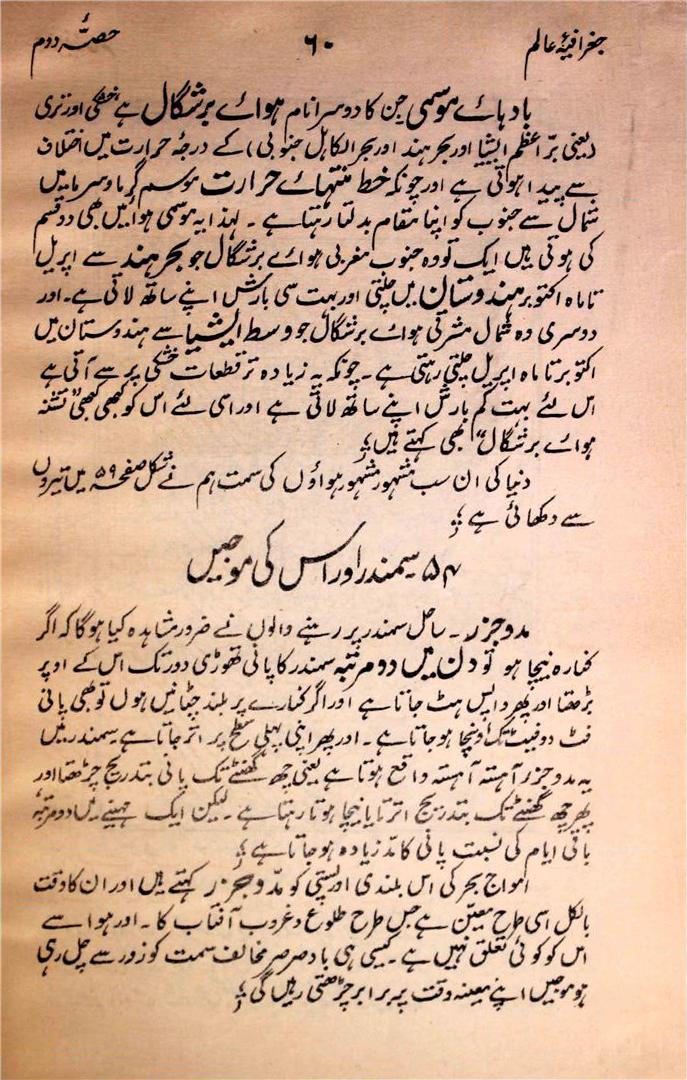 جغرافیۂ عالم ۶۰ حصّۂ دوم
بادہائے موسمی جن کا دوسرا نام ہوائے برشگال ہے خشکی اور تری
(یعنی برّ اعظم ایشیا اور بحر ہند اور بحر الکاہل جنوبی) کے درجۂ حرارت میں اختلاف
سے پیدا ہوتی ہے اور چونکہ خط منتہائے حرارت موسم گرما و سرما میں
شمال سے جنوب کو اپنا مقام بدلتا رہتا ہے ۔ لہذا یہ موسمی ہوائیں بھی دو قسم
کی ہوتی ہیں ایک تو وہ جنوب مغربی ہوائے برشگال جو بحر ہند سے اپریل
تا ماہ اکتوبر ہندوستان میں چلتی اور بہت سی بارش اپنے ساتھ لاتی ہے۔ اور
دوسری وہ شمال مشرقی ہوائے برشگال جو وسط ایشیا سے ہندوستان میں
اکتوبر تا ماہ اپریل چلتی رہتی ہے ۔ چونکہ یہ زیادہ تر قطعات خشکی پر سے آتی ہے
اس لئے بہت کم بارش اپنے ساتھ لاتی ہے اور اسی لئے اس کو کبھی کبھی "تشنہ
ہوائے برشگال" بھی کہتے ہیں؛
دنیا کی ان سب مشہور مشہور ہواؤں کی سمت ہم نے شکل صفحہ ۵۹ میں تیروں
سے دکھائی ہے؛
۵۴ سمندر اور اس کی موجیں
مد و جزر ۔ ساحل سمندر پر رہنے والوں نے ضرور مشاہدہ کیا ہوگا کہ اگر
کنارہ نیچا ہو تو دن میں دو مرتبہ سمندر کا پانی تھوڑی دور تک اس کے اوپر
بڑھتا اور پھر واپس ہٹ جاتا ہے اور اگر کنارے پر بلند چٹانیں ہوں تو بھی پانی
فٹ دو فیٹ تک اونچا ہو جاتا ہے ۔ اور پھر اپنی پہلی سطح پر اتر جاتا ہے سمندر میں
یہ مد و جزر آہستہ آہستہ واقع ہوتا ہے یعنی چھ گھنٹے تک پانی بتدریج چڑھتا اور
پھر چھ گھنٹے تک بتدریج اترتا یا نیچا ہوتا رہتا ہے ۔ لیکن ایک مہینے میں دو مرتبہ
باقی ایام کی نسبت پانی کا مد زیادہ ہو جاتا ہے؛
امواج بحر کی اس بلندی اور پستی کو مدّ و جزر کہتے ہیں اور ان کا وقت
بالکل اسی طرح معیّن ہے جس طرح طلوع و غروب آفتاب کا ۔ اور ہوا سے
اس کو کوئی تعلق نہیں ہے ۔ کیسی ہی باد صرصر مخالف سمت کو زور سے چل رہی
ہو موجیں اپنے معینہ وقت پر برابر چڑھتی رہیں گی؛